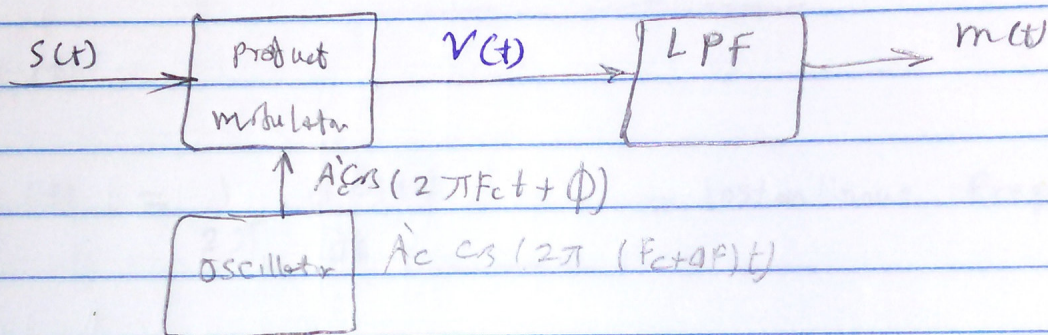 S(t)
product
modulator
V(t)
LPF
m(t)
A'c cos (2πFct + ϕ)
oscillator
A'c cos (2π (Fc+ΔF)t)